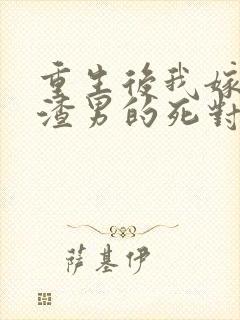 重生後我嫁
渣男的死對
萨基伊